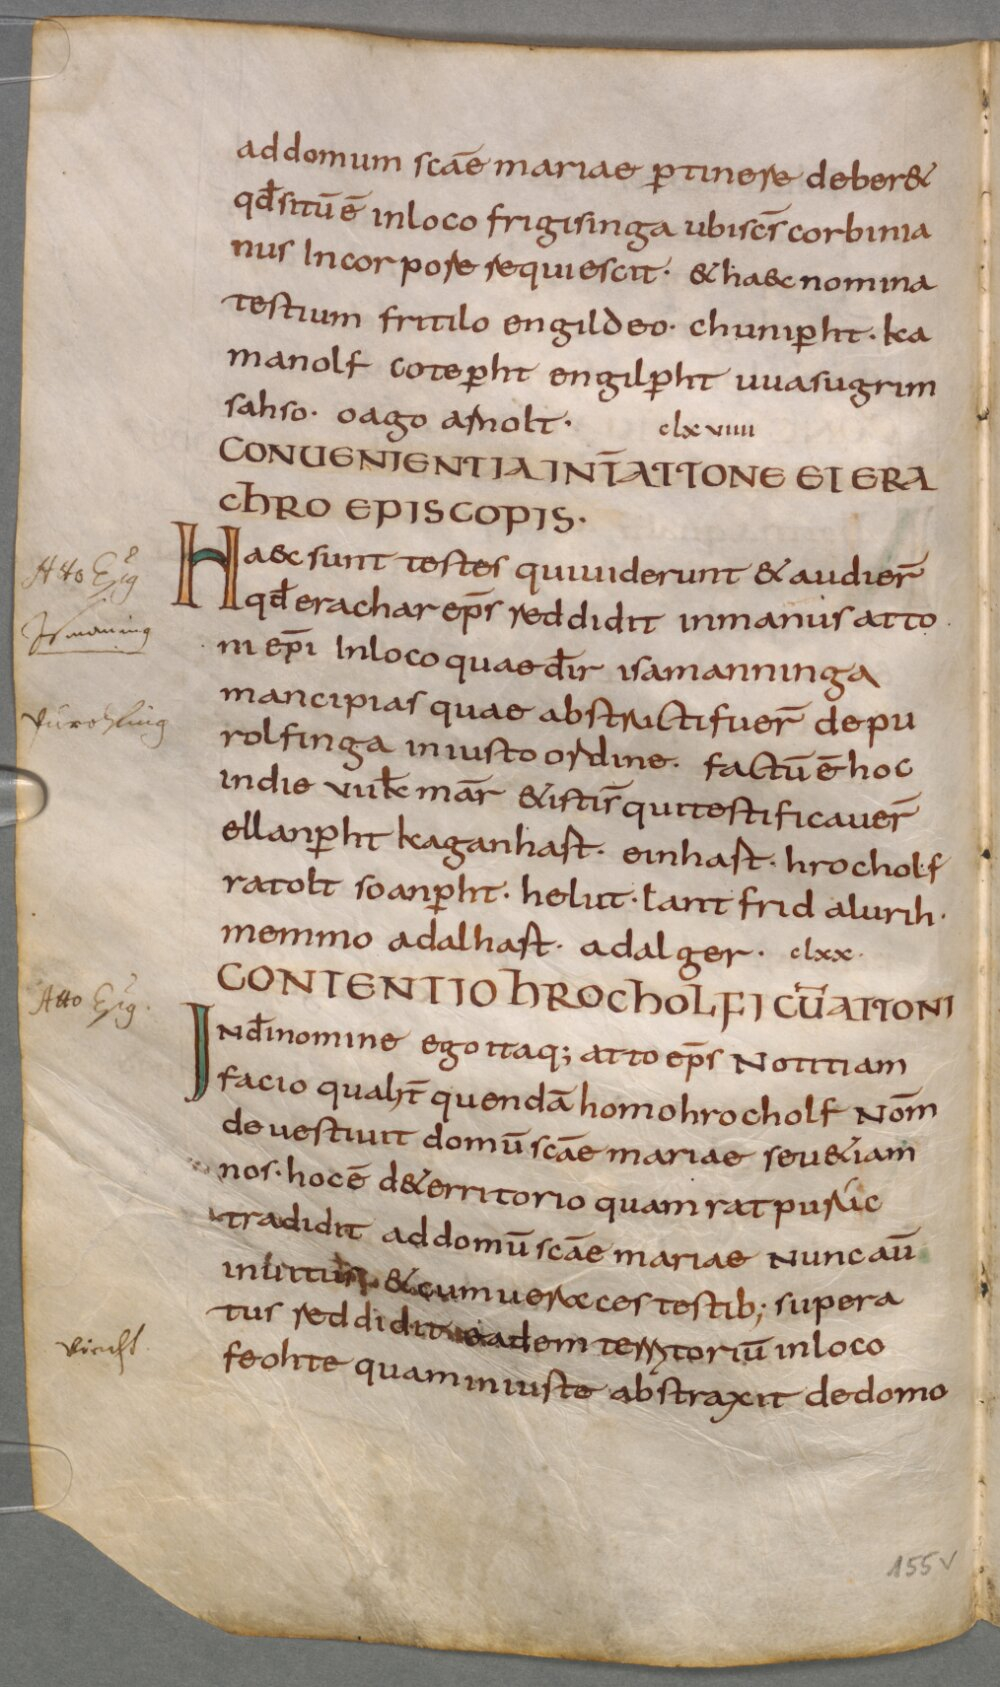 addomum scāe mariae ꝑtinere deber&
qđ sitū ē inloco frigisinga ubi scs̄ corbinia
nus Incorpore requiescit· & haec nomina
testium fritilo engildeo· chuniꝑht · ka
manolf coteꝑht engilꝑht uuasugrim
sahso· oago arnolt· clxviiii
CONUENIENTIA INT̄ ATTONE ET ERA
chRO EPISCOPIS·
Haec sunt testes quiuiderunt & audier̄
qđ erachar ep̄s reddidit inmanus atto
ni ep̄i Inloco quae dr̄ isamanninga
mancipias quae abstructi fuer̄ depu
rolfinga iniusto ordine. factū ē hoc
indie vii kł mar̄ & isti s̄ qui testificauer̄
ellanꝑht kaganhast· einhast· hrocholf
ratolt soanꝑht· helut· lantfrid alurih·
memmo adalhast· adalger· clxx·
CONTENTIO hROChOLFI CŪ ATTONI
INdī nomine ego itaq; atto ep̄s Notitiam
facio qualit̄ quendā homo hrocholf Nom̄
deuestiuit domū scāe mariae seu &iam
nos· hoc ē de territorio quam ratpuric
tradidit addomū scāe mariae Nunc aū
inuitus & cum ueraces testib; supera
tus reddidit eadem territoriū inloco
feohte quam iniuste abstraxit dedomo
Atto Ep̄g
Ismaning
Pürohfing
Atto Ep̄g.
Viecht
155v